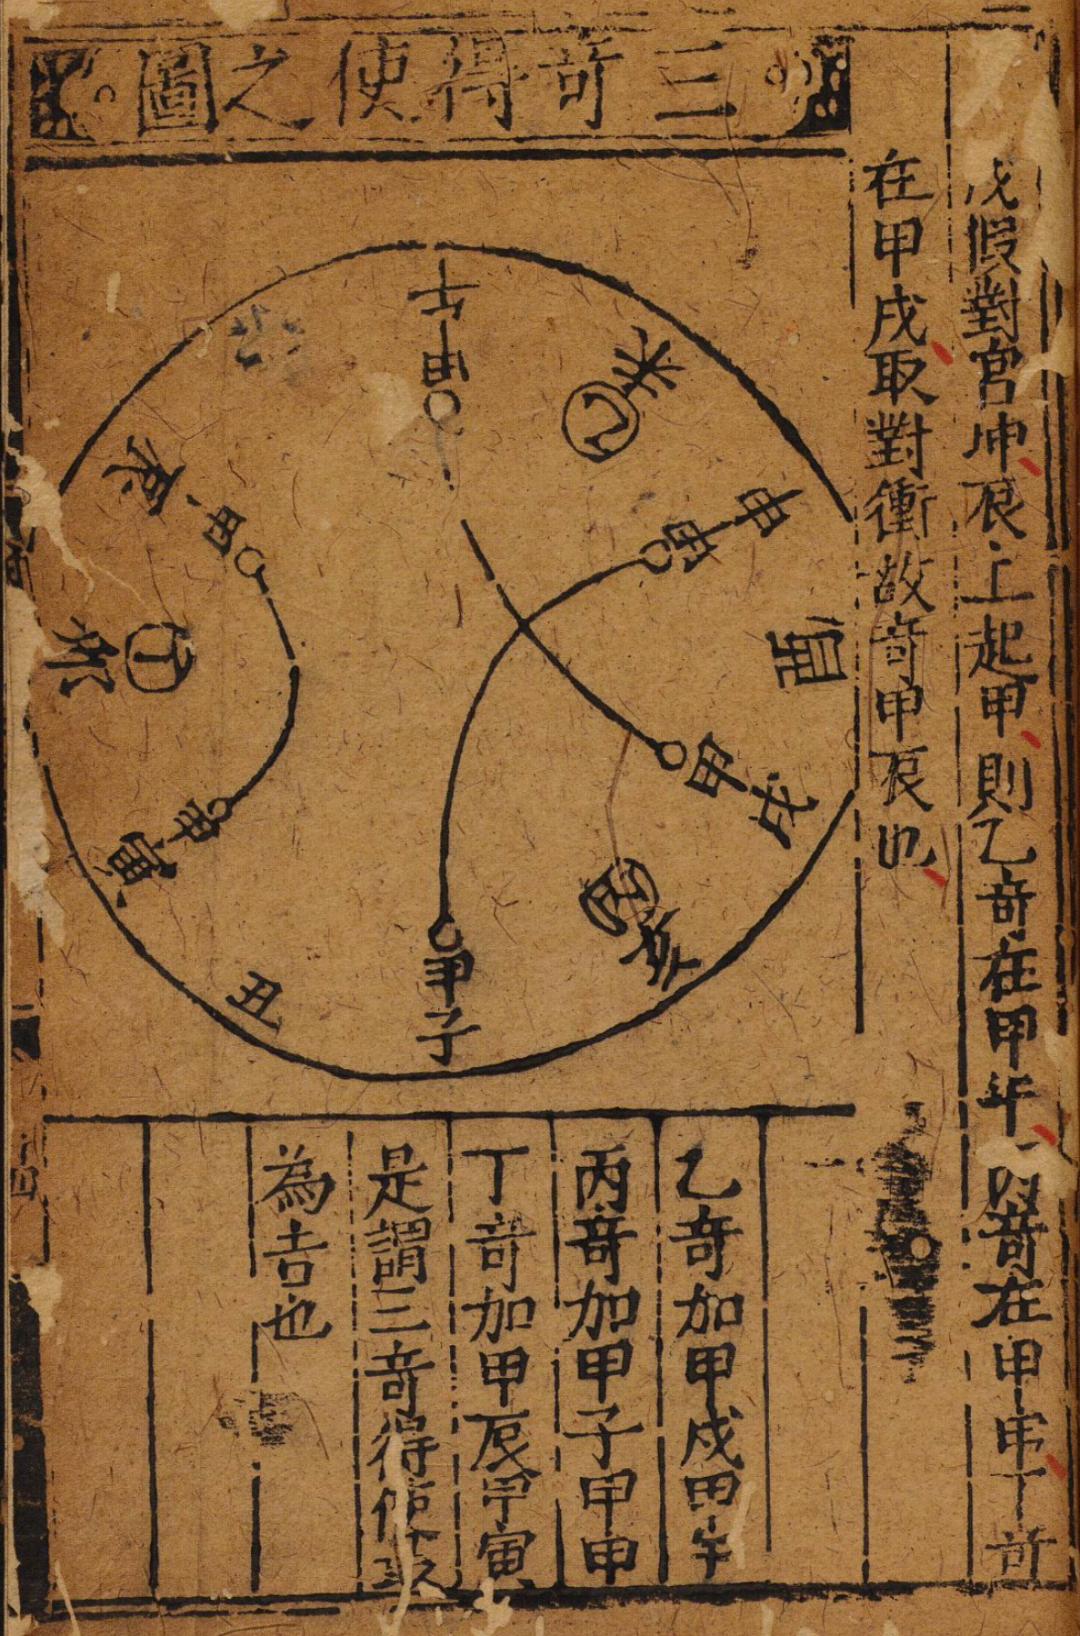 戌假對宮冲辰上起甲則乙奇在甲午奇在甲申丁奇
在甲戌取對衝故奇甲辰也
三奇得使之圖
午甲
未乙
申甲
酉
戌甲
亥
甲子
丑
甲寅
卯丁
辰甲
乙奇加甲戌甲午
丙奇加甲子甲申
丁奇加甲辰甲寅
是謂三奇得使
為吉也